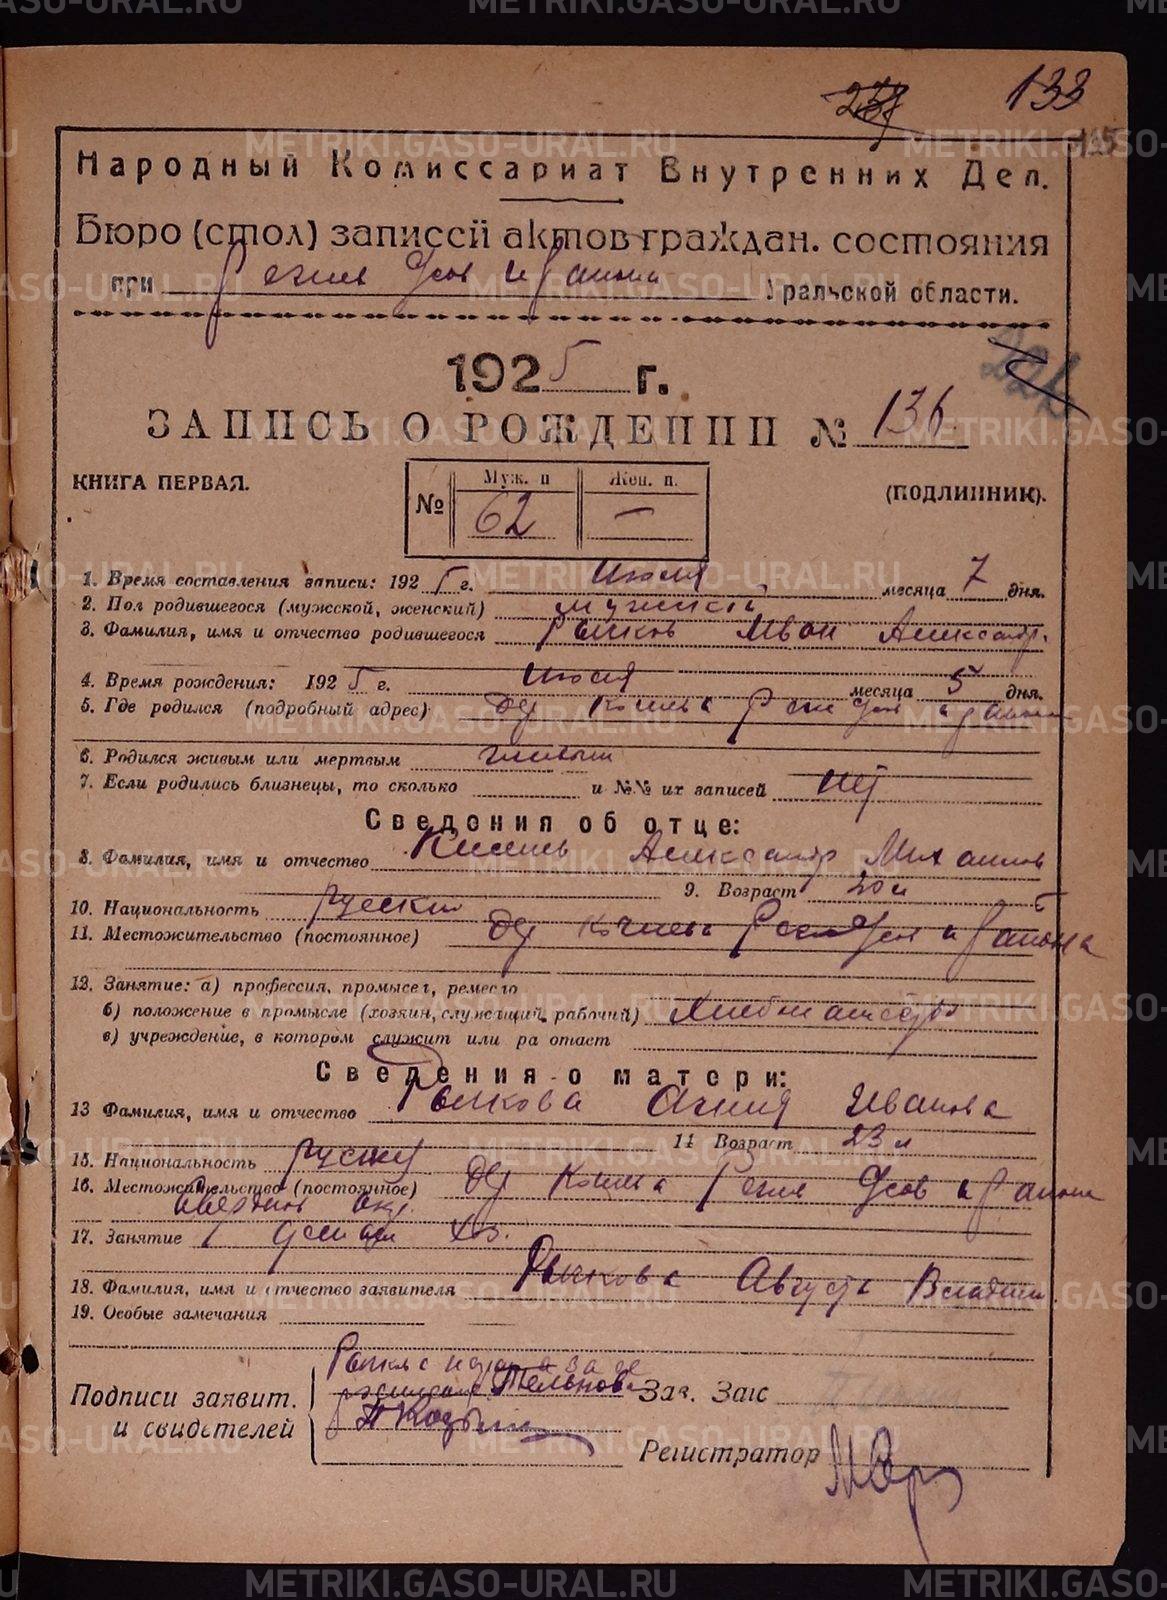 133
Народный Комиссариат Внутренних Дел.
Бюро (стол) записей актов граждан. состояния
при Уральской области.
1925 г.
ЗАПИСЬ О РОЖДЕНИИ № 136
КНИГА ПЕРВАЯ.
(ПОДЛИННИК).
№ Муж. п Жен. п.
62 —
1. Время составления записи: 1925 г. Июля месяца 7 дня.
2. Пол родившегося (мужской, женский) мужской
3. Фамилия, имя и отчество родившегося Рычков Иван Александр.
4. Время рождения: 1925 г. Июля месяца 5 дня.
5. Где родился (подробный адрес) района
6. Родился живым или мертвым живым
7. Если родились близнецы, то сколько и №№ их записей нет
Сведения об отце:
8. Фамилия, имя и отчество Александр Михаилов
9. Возраст 20 л
10. Национальность русский
11. Местожительство (постоянное) района
12. Занятие: а) профессия, промысел, ремесло
б) положение в промысле (хозяин, служащий, рабочий) Хлебпашество
в) учреждение, в котором служит или ра отает
Сведения о матери:
13 Фамилия, имя и отчество Рычкова Агния Иванова
14 Возраст 23 л
15. Национальность русская
16. Местожительство (постоянное) района
17. Занятие хоз.
18. Фамилия, имя и отчество заявителя Рычкова Августа Владим.
19. Особые замечания
Подписи заявит.
и свидетелей
Тельнова
Зав. Загс
Регистратор
METRIKI.GASO-URAL.RU